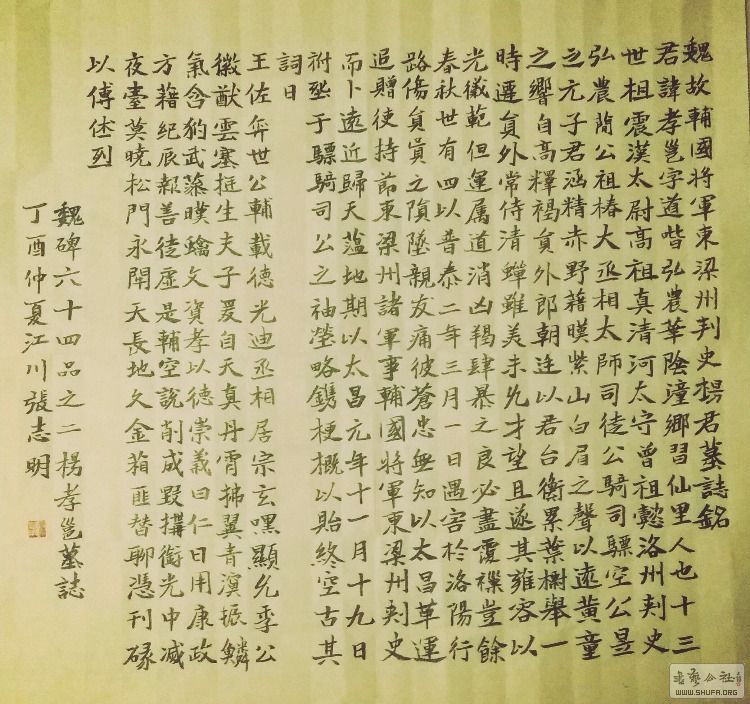 魏故輔國將軍東梁州刺史楊君墓誌銘
君諱孝邕字道皆弘農華陰潼鄉習仙里人也十三
世祖震漢太尉高祖真清河太守曾祖懿洛州刺史
弘農簡公祖椿大丞相太師司徒公騎司驃空公昱
之元子君涵精赤野藉暎紫山白眉之聲以遠黃童
之響自高釋褐貟外郎朝廷以君台衡累葉樹舉一
時遷貟外常侍清蟬雖美未允才望且遂其雍容以
光儀範但運属道消凶羯肆暴之良必盡覆禩豈餘
春秋世有四以普泰二年三月一日遇害於洛陽行
路傷貟貟之隕墜親友痛彼蒼忠無知以太昌革運
追贈使持節東梁州諸軍事輔國將軍東梁州刺史
而卜遠近歸天蕰地期以太昌元年十一月十九日
祔塟于驃騎司公之袖塋略鐫梗概以貽終空古其
詞日
王佐弈世公輔載德光迪丞相居宗玄嘿顯允季公
徽猷雲塞挺生夫子爰自天真丹霄拂翼青溟振鱗
氣含豹武藻暎蟾文資孝以德崇義曰仁日用康政
方藉紀辰報善徒虛是輔空說削成毀搆銜光中滅
夜臺莫曉松門永閇天長地久金箱匪替聊憑刊琭
以傅休烈
魏碑六十四品之二楊孝邕墓誌
丁酉仲夏江川張志明
書藝公社
WWW.SHUFA.ORG